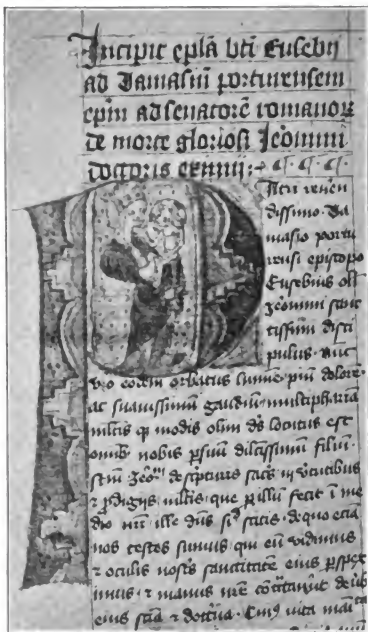 Incipit epla bti Eusebij
ad Damasiu portuensem
epm ad senatore romanor
de morte gloriosi Jeronimi
doctoris eximij
Patri reueren
dissimo Da
masio portu
ensi episcopo
Eusebius oli
Jeronimi sanc
tissimi disci
pulus nuc
vero eodem orbatus lumie piu dolore
ac suauissimu gaudiu multiphariā
multis q modis olim ds locutus est
omib nobis p suu dilcissimum filiu
scm de scripturis sacris in virtutibus
⁊ pdigijs multis que p illu fecit i me
dio nri ille dns sic scitis de quo etiā
nos testes sumus qui eu vidimus
⁊ oculis nostris sanctitate eius pspex
imus ⁊ manus nre de ūb
eius scia ⁊ doctrina Cuius vita